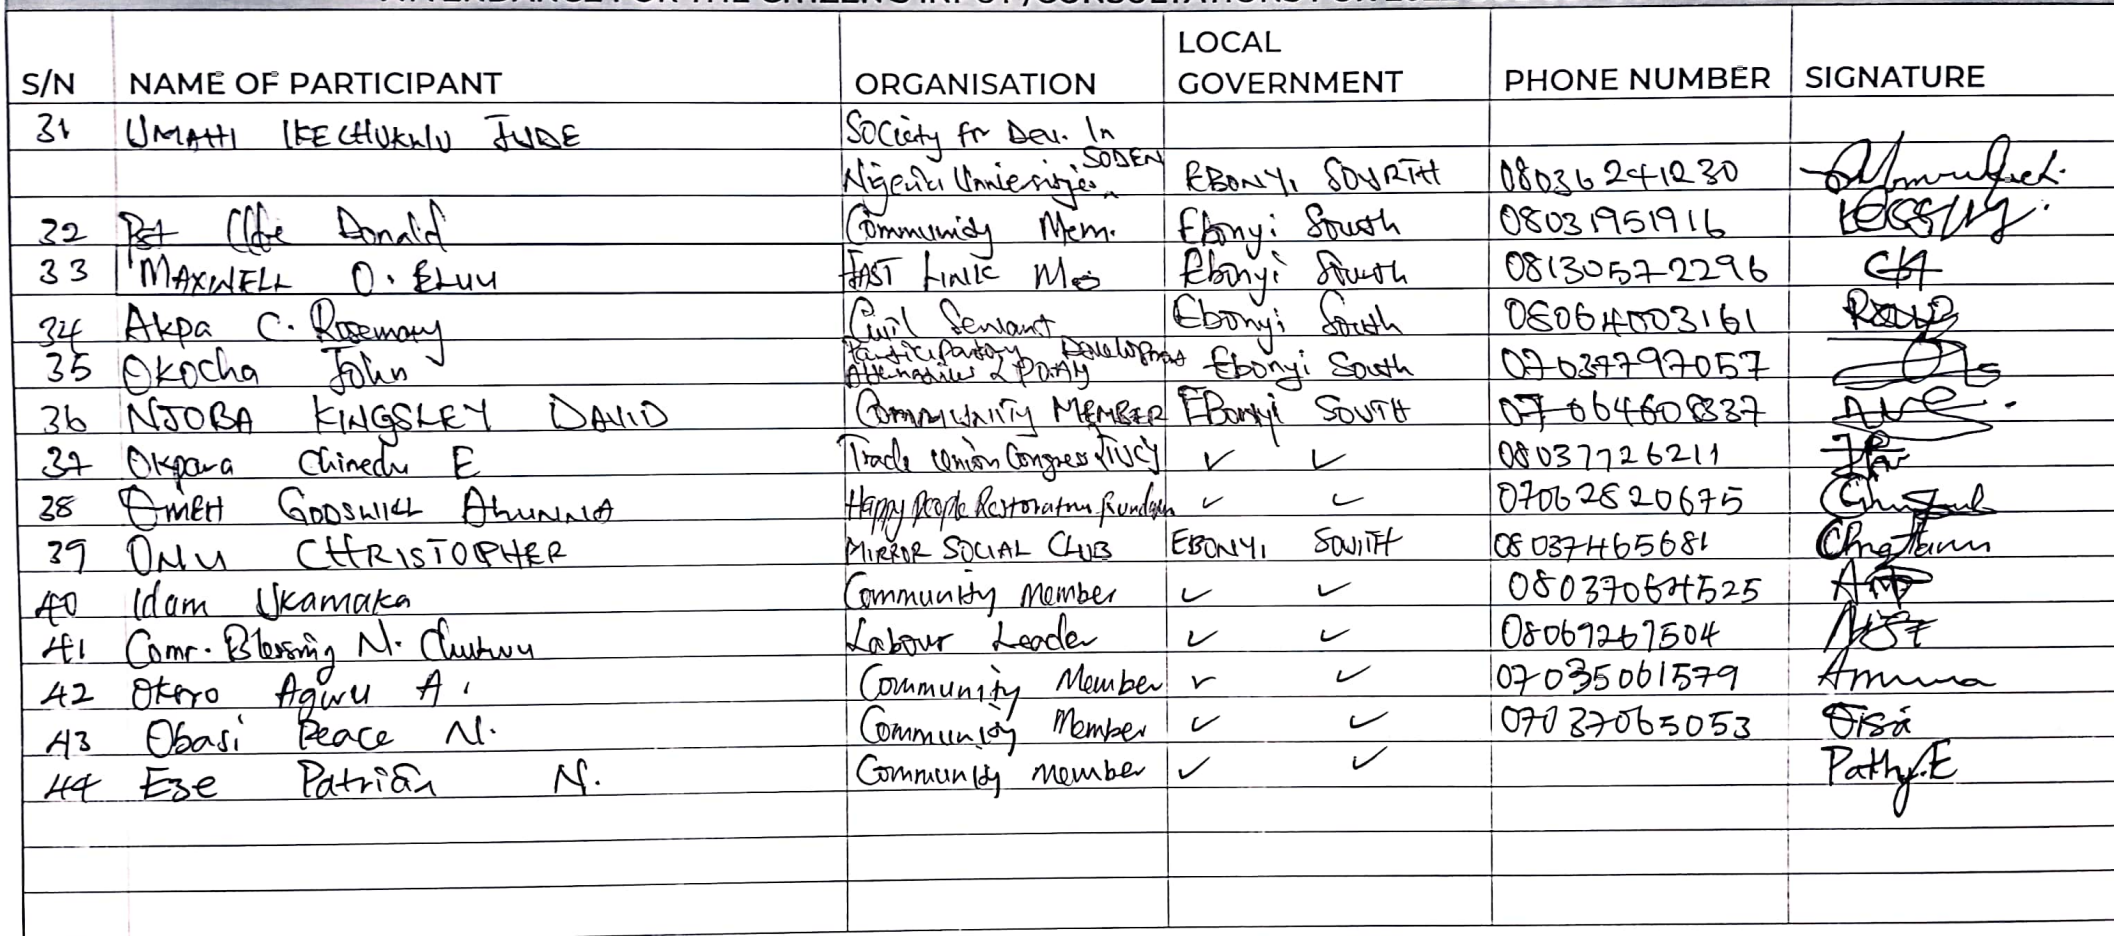 S/N NAME OF PARTICIPANT ORGANISATION LOCAL GOVERNMENT PHONE NUMBER SIGNATURE
31 UMAHI IKECHUKWU JUDE Society fr Dev. In
Nigeria Universities SODEN EBONYI SOUTH 08036241230
32 Pst Donald Community Mem. Ebonyi South 08031951916
33 MAXWELL O. ELUU FAST LINK Ebonyi South 08130572296
34 Akpa C. Rosemary Civil Servant Ebonyi South 08064003161
35 Okocha John Participatory Development Alternatives Ebonyi South 07037797057
36 NJOBA KINGSLEY DAVID COMMUNITY MEMBER EBonyi SOUTH 07064608337
37 Okpara Chinedu E Trade Union Congress (TUC) ✓ ✓ 08037726211
38 GODSWILL AHUNNA Happy People Restoration ✓ ✓ 07062820675
39 ONU CHRISTOPHER MIRROR SOCIAL CLUB EBONYI SOUTH 08037465681
40 Idam Ukamaka Community Member ✓ ✓ 08037064525
41 Comr. Blessing N. Chukwu Labour Leader ✓ ✓ 08069267504
42 Okoro Agwu A. Community Member ✓ ✓ 07035061579
43 Obasi Peace N. Community Member ✓ ✓ 07037065053
44 Eze N. Community member ✓ ✓ Pathy.E